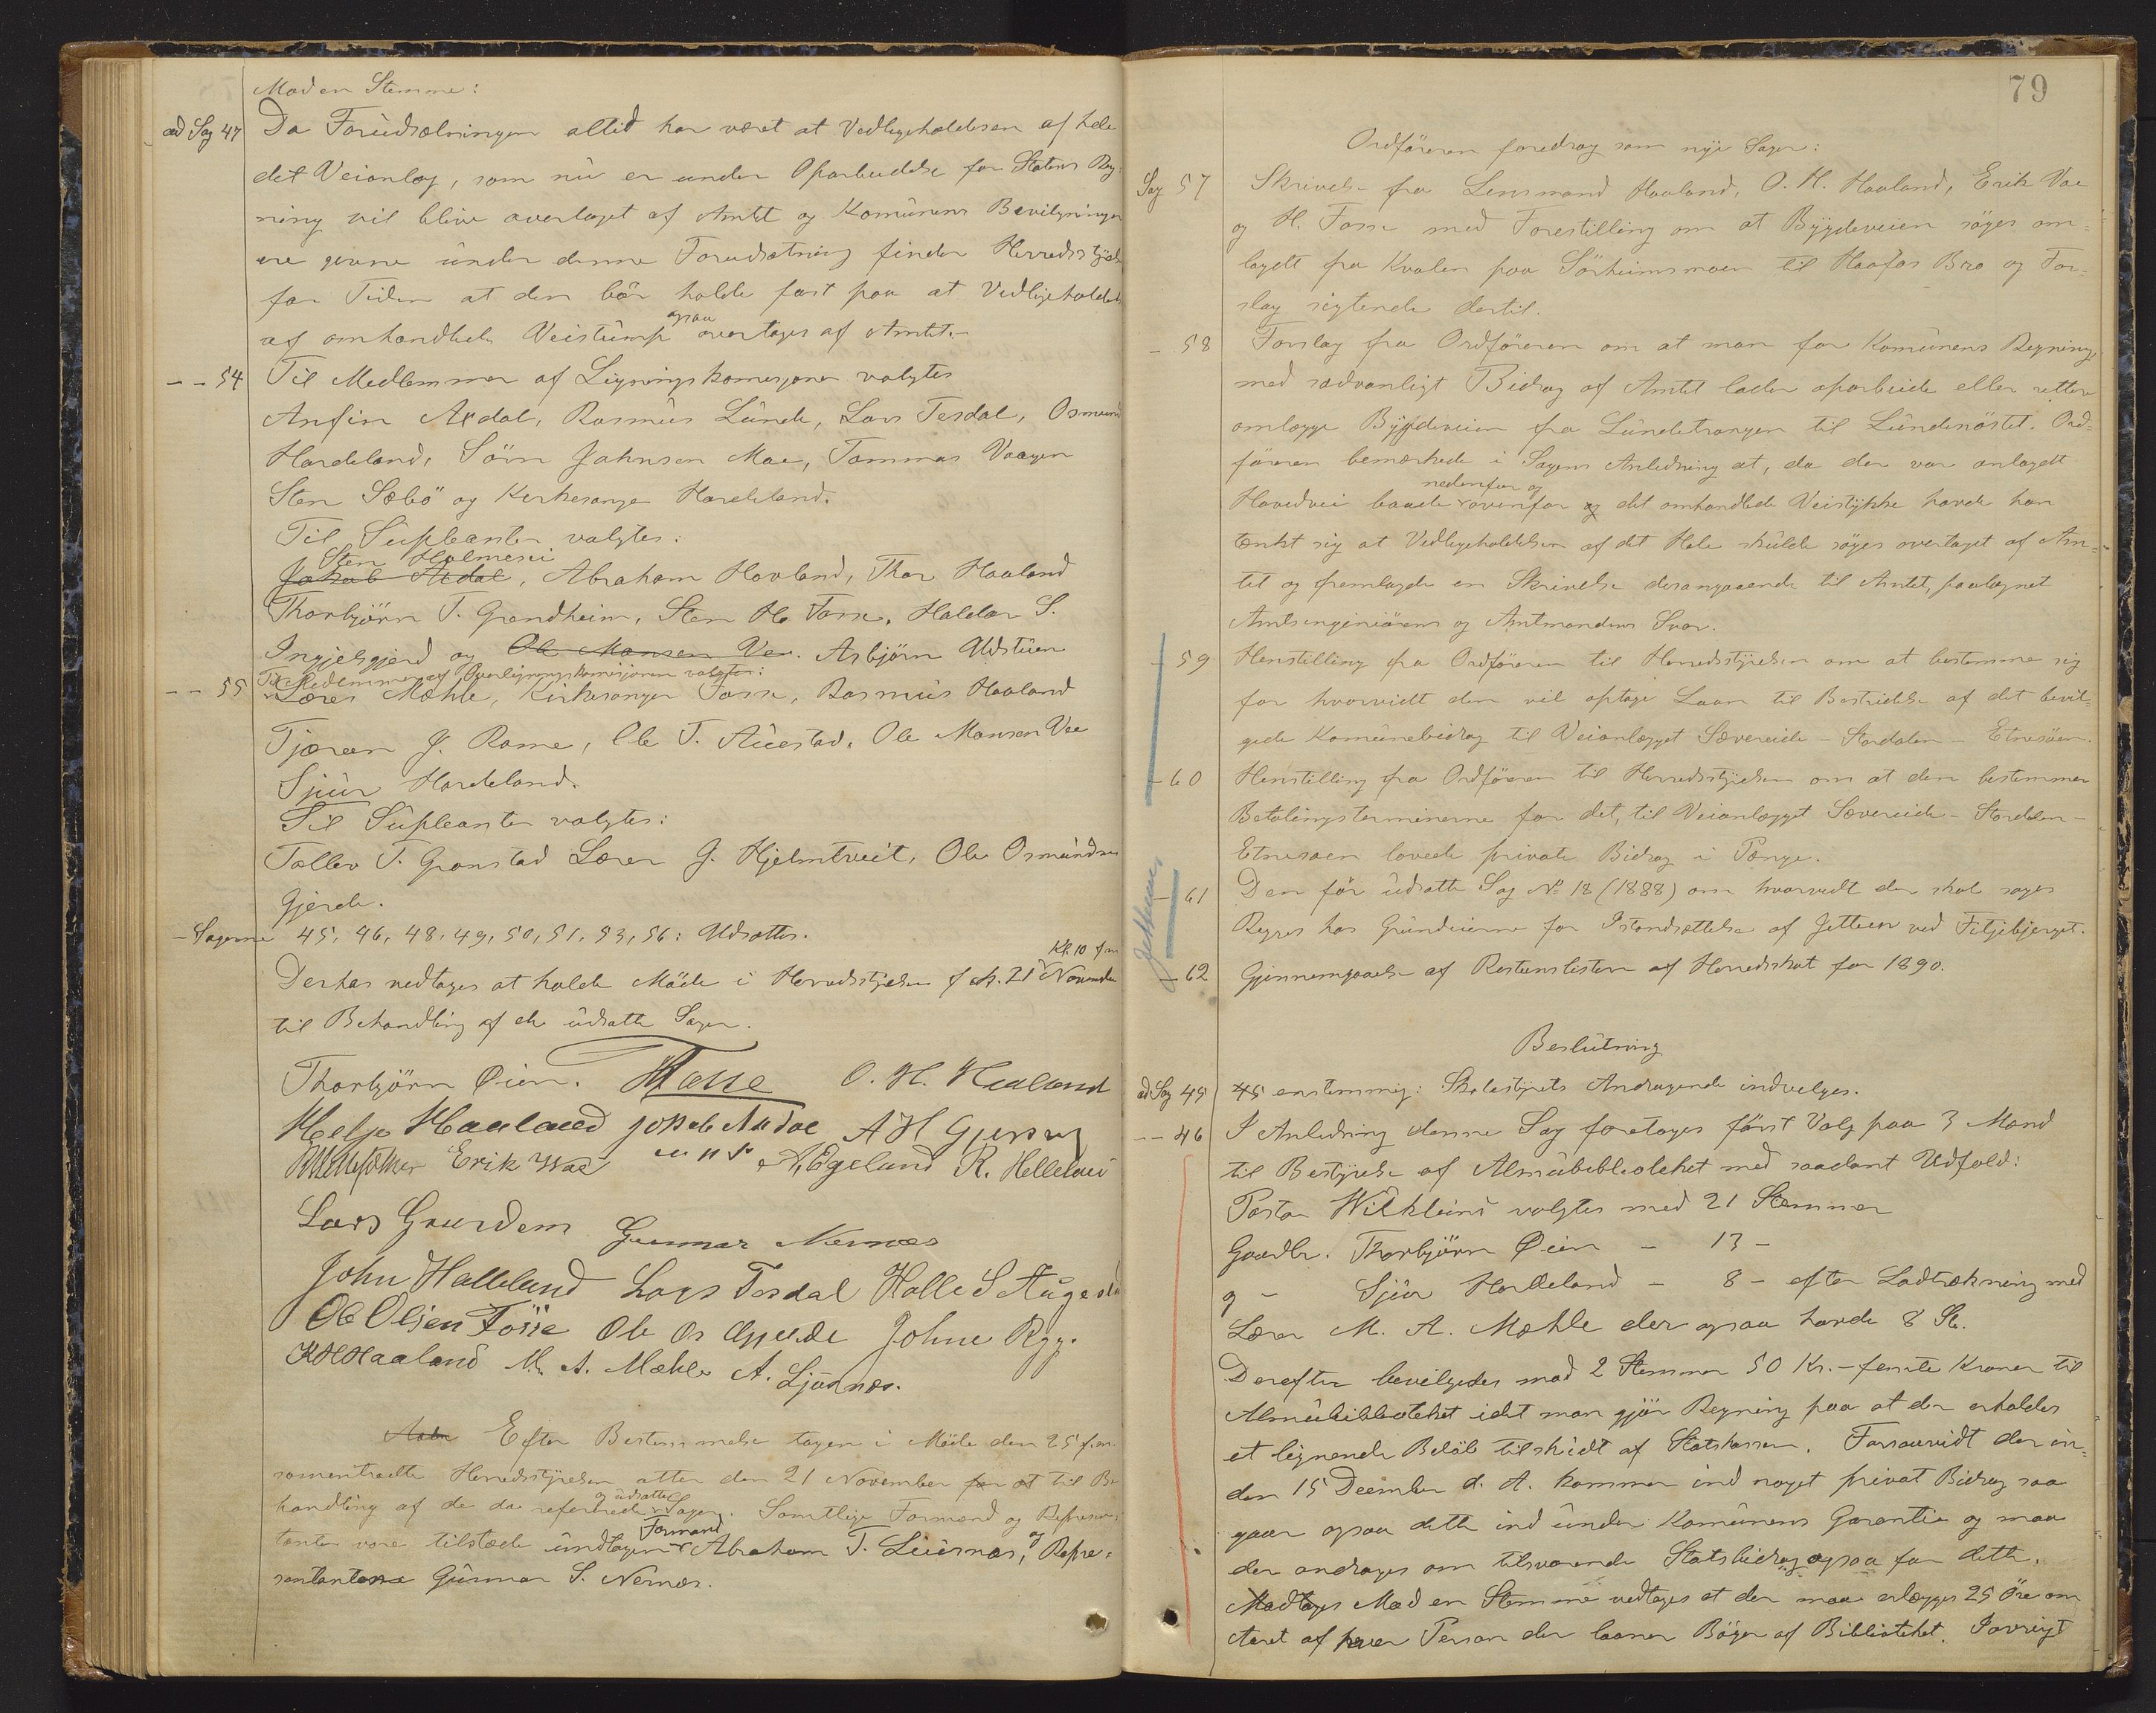 Mod en Stemme:
ad Sag 47 Da Forudsætningen altid har været at Vedligeholdelsen af hele
det Veianlæg, som nu er under Oparbeidelse for Statens Reg-
ning vil blive overtaget af Amtet og Komunens Bevilgninger
ere givne under denne Forudsætning finder Herredsstyrelsen
for Tiden at den bör holde fast paa at Vedligeholdelsen
af omhandlede Veistump ogsaa overtages af Amtet.-
- - 54 Til Medlemmer af Ligningskomesjonen valgtes
Anfin Axdal, Rasmus Lunde, Lars Tesdal, Osmund
Hardeland, Sörn Johnsen Mae, Tommas Vaagen
Sten Sæbö og Kirkesanger Hardeland.
Til Supleanter valgtes:
Sten Halmesei
Jakob Axdal, Abraham Hovland, Thor Haaland
Thorbjörn T. Grendheim, Sten H. Fosse, Haldor S.
Ingjelsgjerd og Ole Monsen Vee. Asbjörn Udstuen
Til Medlemmer af Overligningskomisjonen valgtes:
- - 55 Lærer Mæhle, Kirkesanger Fosse, Rasmus Haaland
Tjæran J. Rame, Ole T. Auestad, Ole Monsen Vee
Sjur Hardeland.
Til Supleanter valgtes:
Tollev T. Grönstad Lærer J. Hjelmtveit, Ole Osmundsen
Gjerde.
- Sagerne 45, 46, 48, 49, 50, 51, 53, 56: Udsattes.
Derhos vedtages at holde Möde i Herredsstyrelsen f. A. 21 Kl. 10 fm November
til Behandling af de udsatte Sager.
Thorbjörn Øien. H Fosse O. H. Haaland
Helje Haaland Jokob Axdal A H Gjersvig
Erik Vae A. Egeland R. Helleland
Lars Grindem Gunnar Nernæs
John Halleland Lars Tesdal Halle S Augestad
Ole Olsen Fosse Ole Os Gjerde Johne Rygg.
K H Haaland M. A. Mæhle A. Ljosnæs.
Efter Bestemmelse tagen i Möde den 25 f.m.
samentraadte Herredsstyrelsen atter den 21 November for at til Be-
handling af de da refererede og udsatte Sager. Samtlige Formænd og Represen-
tanter vare tilstæde undtagen Formand Abraham T. Leirnæs, og Repre-
sentantene Gunnar S. Nernæs.
79
Ordföreren foredrog som nye Sager:
Sag 57 Skrivelse fra Lensmand Haaland, O. H. Haaland, Erik Vae
og H. Fosse med Forestilling om at Bygdeveien söges om-
lagdt fra Kvalen paa Sörheimsmoen til Haafos Bro og For-
slag sigtende dertil.
- 58 Forslag fra Ordföreren om at man for Komunens Regning,
med sædvanligt Bidrag af Amtet lader oparbeide eller rettere
omlægge Bygdeveien fra Lundetrangen til Lundenöstet. Ord-
föreren bemærkede i Sagens Anledning at, da der var anlagdt
Hovedvei baade nedenfor og ovenfor og det omhandlede Veistykke havde han
tænkt sig at Vedligeholdelsen af det Hele skulde söges overtaget af Am-
tet og fremlagde en Skrivelse desangaaende til Amtet, paategnet
Amtsingeniörens og Amtmandens Svar.
- 59 Henstilling fra Ordföreren til Herredsstyrelsen om at bestemme sig
for hvorvidt den vil optage Laan til Bestridelse af det bevil-
gede Komunebidrag til Veianlægget Sævereide - Stordalen - Etnesöen.
- 60 Henstilling fra Ordföreren til Herredsstyrelsen om at den bestemmer
Betalingsterminerne for det, til Veianlægget Sævereide - Stordalen -
Etnesöen lovede private Bidrag i Penge.
- 61 Den för udsatte Sag No 18 (1888) om hvorvidt der skal söges
Regres hos Grundeierne for Istandsættelse af Jetteen ved Fitjebjerget.
- 62 Gjennemgaaelse af Restanslisten af Herredskat for 1890.
Beslutning
ad Sag 45 45 enstemmig: Skolestyrets Andragende indvilges.
- - 46 I Anledning denne Sag foretages först Valg paa 3 Mænd
til Bestyrelse af Almubibliotheket med saadant Udfald:
Pastor Wilhkleins valgtes med 21 Stemmer
Gaardbr. Thorbjörn Øien - 13 -
og - Sjur Hardeland - 8 - efter Lodtrækning med
Lærer M. A. Mæhle der ogsaa havde 8 St.
Derefter bevilgedes mod 2 Stemmer 50 Kr. - femti Kroner til
Almubibliotheket idet man gjör Regning paa at der erholdes
et lignende Belöb tilskudt af Statskassen. Forsaavidt der in-
den 15 December d. A. kommer ind noget privat Bidrag saa
gaar ogsaa dette ind under Komunens Garanti og maa
der andrages om tilsvarende Statsbidrag ogsaa for dette.
Mod en Stemme vedtages at der maa erlægges 25 Öre om
Aaret af hver Person der laaner Böger af Bibliotheket. Iövrigt